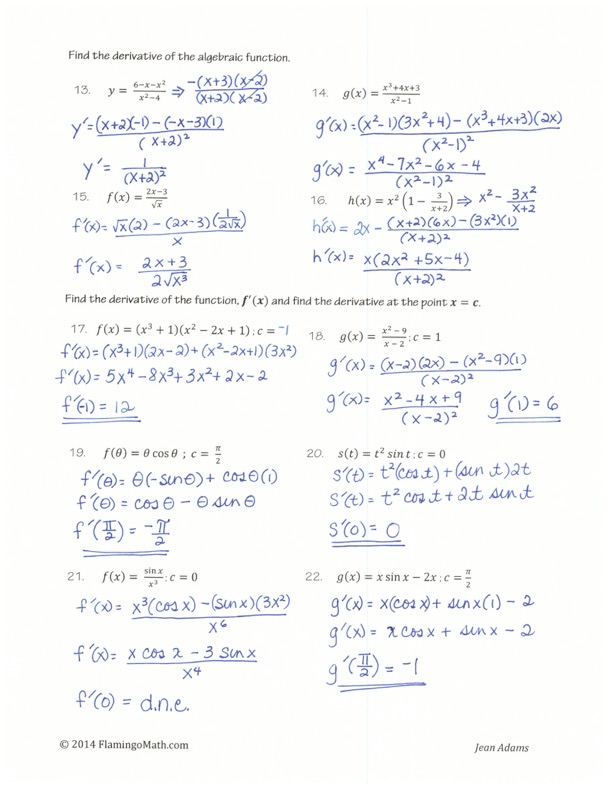 Find the derivative of the algebraic function.
13. y = (6−x−x²)/(x²−4) ⇒ −(x+3)(x−2)/((x+2)(x−2))
y′ = ((x+2)(−1) − (−x−3)(1))/(x+2)²
y′ = 1/(x+2)²
14. g(x) = (x³+4x+3)/(x²−1)
g′(x) = ((x²−1)(3x²+4) − (x³+4x+3)(2x))/(x²−1)²
g′(x) = (x⁴−7x²−6x−4)/(x²−1)²
15. f(x) = (2x−3)/√x
f′(x) = (√x(2) − (2x−3)(1/(2√x)))/x
f′(x) = (2x+3)/(2√x³)
16. h(x) = x²(1 − 3/(x+2)) ⇒ x² − 3x²/(x+2)
h′(x) = 2x − ((x+2)(6x) − (3x²)(1))/(x+2)²
h′(x) = x(2x²+5x−4)/(x+2)²
Find the derivative of the function, f′(x) and find the derivative at the point x = c.
17. f(x) = (x³ + 1)(x² − 2x + 1); c = −1
f′(x) = (x³+1)(2x−2) + (x²−2x+1)(3x²)
f′(x) = 5x⁴ − 8x³ + 3x² + 2x − 2
f′(−1) = 12
18. g(x) = (x²−9)/(x−2); c = 1
g′(x) = ((x−2)(2x) − (x²−9)(1))/(x−2)²
g′(x) = (x²−4x+9)/(x−2)² g′(1) = 6
19. f(θ) = θ cos θ ; c = π/2
f′(θ) = θ(−sinθ) + cosθ(1)
f′(θ) = cosθ − θ sinθ
f′(π/2) = −π/2
20. s(t) = t² sin t; c = 0
s′(t) = t²(cos t) + (sin t)2t
s′(t) = t² cos t + 2t sin t
s′(0) = 0
21. f(x) = sin x/x³; c = 0
f′(x) = (x³(cos x) − (sin x)(3x²))/x⁶
f′(x) = (x cos x − 3 sin x)/x⁴
f′(0) = d.n.e.
22. g(x) = x sin x − 2x; c = π/2
g′(x) = x(cos x) + sin x(1) − 2
g′(x) = x cos x + sin x − 2
g′(π/2) = −1
© 2014 FlamingoMath.com
Jean Adams